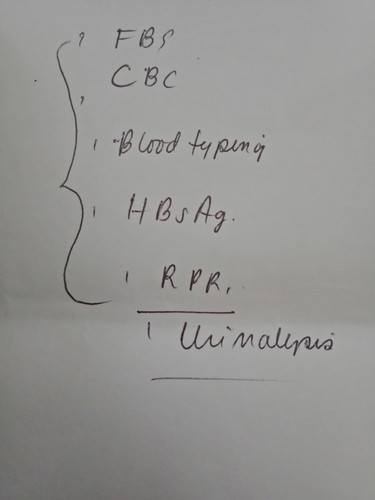 FBS
CBC
Blood typing
HBsAg.
RPR,
Urinalysis